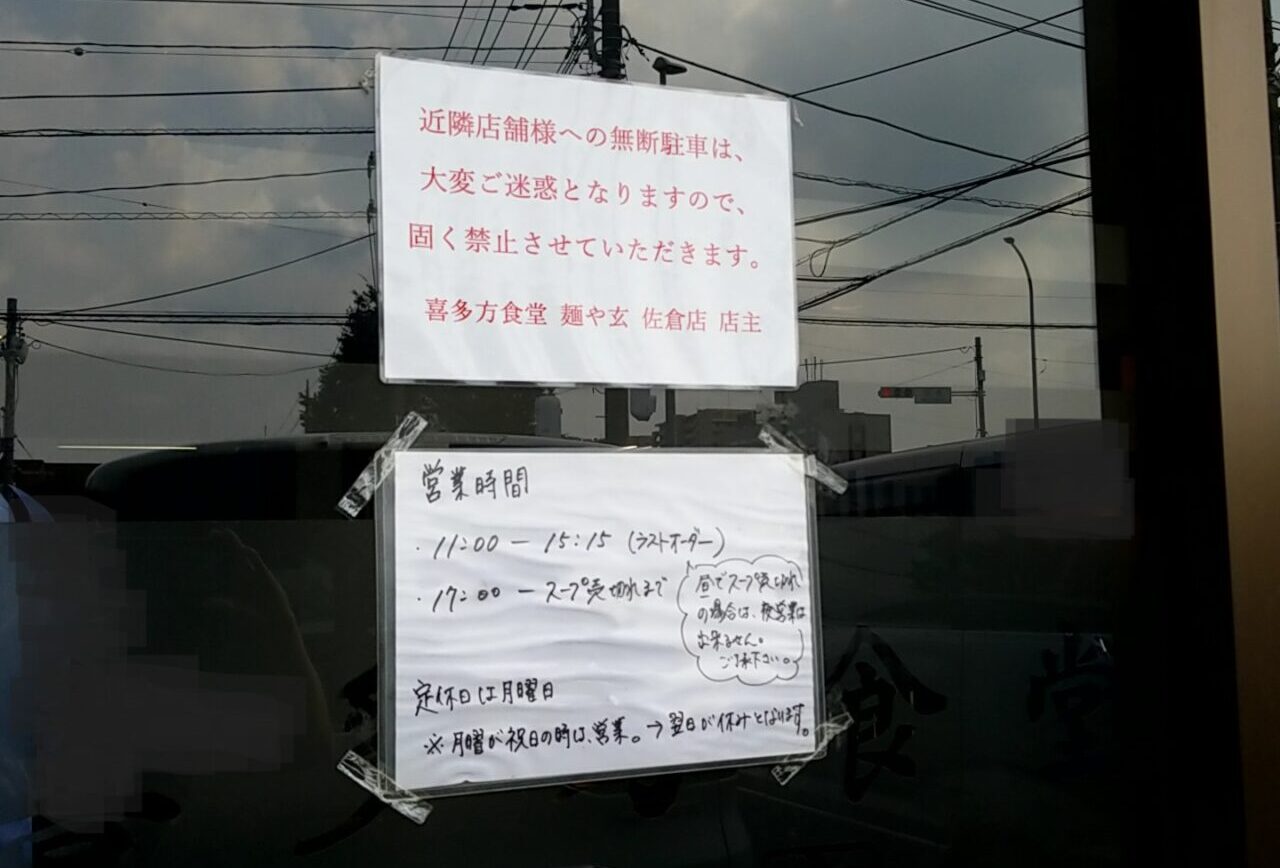 近隣店舗様への無断駐車は、
大変ご迷惑となりますので、
固く禁止させていただきます。
喜多方食堂 麺や玄 佐倉店 店主
営業時間
・11:00 — 15:15 (ラストオーダー)
・17:00 — スープ売切れまで
昼でスープ売切れ
の場合は、夜営業は
出来ません。
ご了承下さい。
定休日は月曜日
※月曜が祝日の時は、営業。→翌日が休みとなります。
食堂